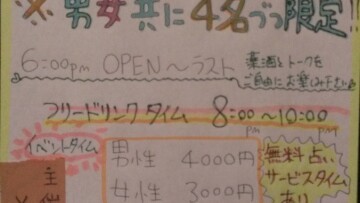 ※男女共に4名づつ限定!!
6:00pm OPEN〜ラスト
楽酒とトークを
ご自由にお楽しみ下さい
フリードリンクタイム 8:00〜10:00
pm pm
イベントタイム
男性 4000円
女性 3000円
無料占い
サービスタイム
あり
主催